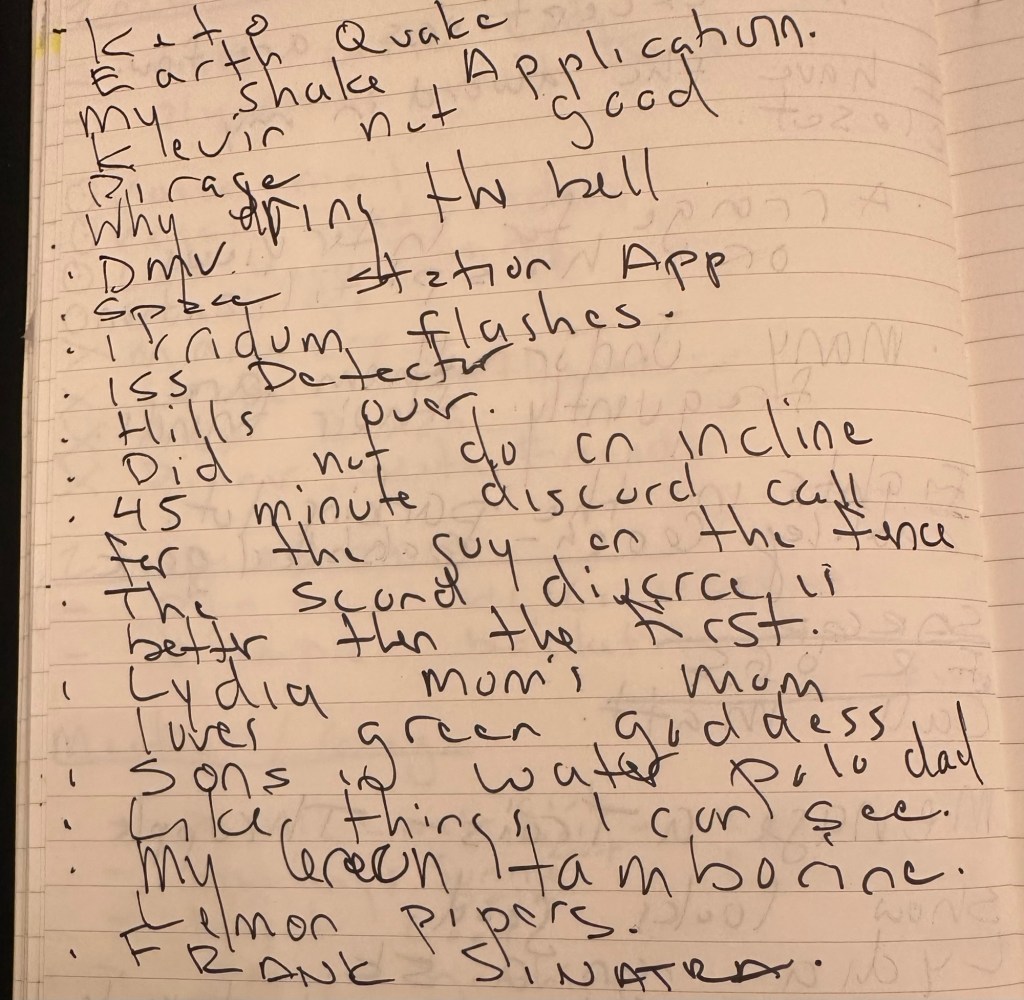 - Keto
Earth Quake
My Shake Application.
Klevin not good
Why bring the bell
· DMV.
· Space Station App
· Irridum flashes.
· ISS Detector
· Hills over.
· Did not do on incline
· 45 minute discord call
for the guy on the fence
· The second divorce is
better then the first.
· Lydia mom's mom
loves green goddess
· Sons in water polo dad
· Like things I can see.
· My Green tamborine.
Lelmon pipers.
· FRANK SINATRA.